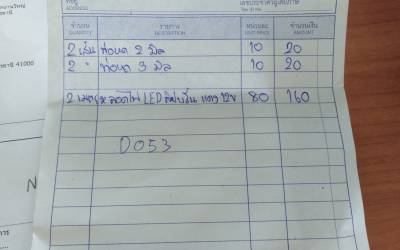 ที่อยู่
ADDRESS
เลขประจำตัวผู้เสียภาษี
จำนวน รายการ หน่วยละ จำนวนเงิน
QUANTITY DESCRIPTION UNIT PRICE AMOUNT
2 เส้น ท่อหด 2 มิล 10 20
2 " ท่อหด 3 มิล 10 20
2 เมตร หลอดไฟ LED แดง 12V 80 160
D053
41000
N